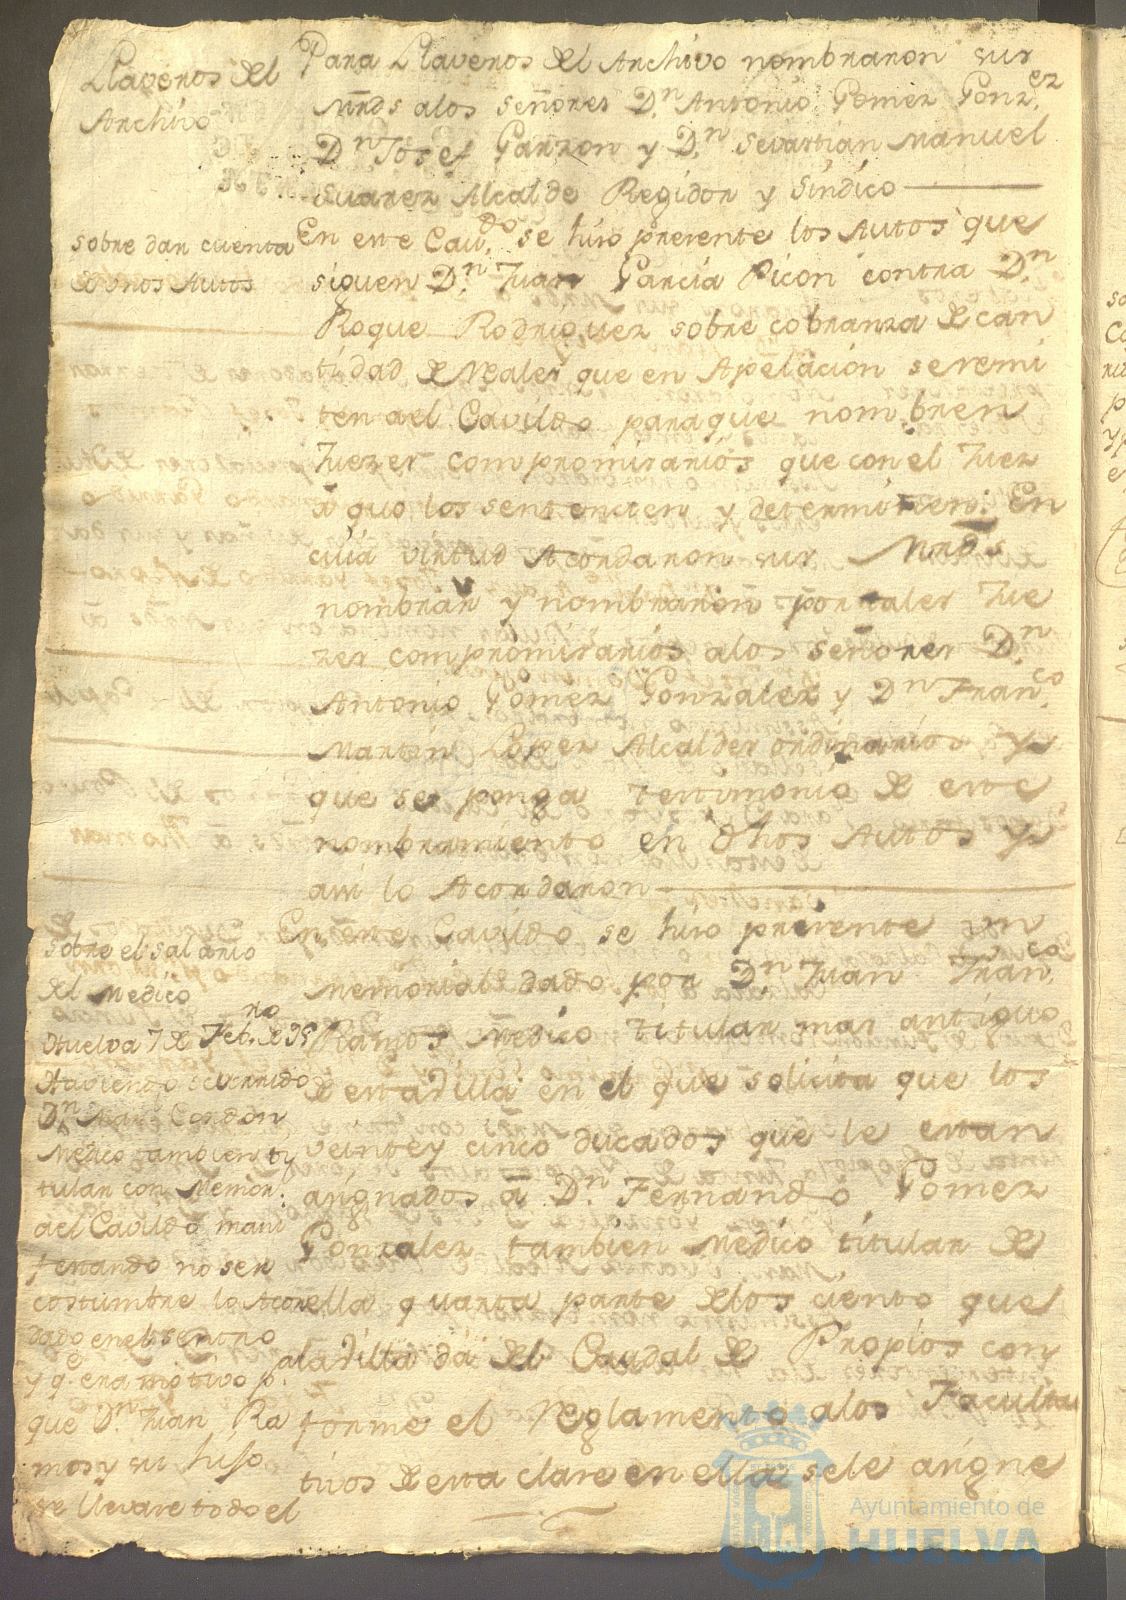 Llaveros del
Archivo
Para Llaveros del Archivo nombraron sus
Mrds alos señores Dn. Antonio Gomez Gonz.ez
Dn Josef Garzon y Dn. Sevastian Manuel
Suarez Alcalde Regidor y Sindico
sobre dar cuenta
de unos Autos
En este Cav.do se hizo presente los Autos que
siguen Dn. Juan Garcia Picon contra Dn.
Roque Rodriguez sobre cobranza de can
tidad de reales que en Apelacion se remi
ten ael Cavildo paraque nombren
Juezes compromisarios que con el Juez
á quo los sentencien y determinen: En
cuia virtud Acordaron sus Mrds
nombrar y nombraron por tales Jue
zes compromisarios alos señores Dn.
Antonio Gomez Gonzalez y Dn Fran.co
Martin Lopez Alcaldes ordinarios y
que se ponga testimonio de este
nombramiento en dhos Autos y
assi lo Acordaron
sobre el salario
del Medico
En este Cavildo se hizo presente un
Memorial dado por Dn. Juan Fran.co
Ramos Medico titular mas antiguo
de esta Villa en el que solicita que los
veinte y cinco ducados que le estan
asignados á Dn. Fernando Gomez
Gonzalez tambien Medico titular de
ella quarta parte delos ciento que
ala Villa dá del Caudal de Propios con
forme el reglamento alos Faculta
tivos de esta clase en ella sele asigne
Huelva 7 de Feb.ro de
Haviendo ocurrido
Dn. Cordon
Medico tambien ti
tular con Memor.l
ael Cavildo mani
festando no ser
costumbre lo Acor
dado en el
y q.e era motivo p.a
que Dn. Juan Ra
mos y su hijo
se llevare todo el
Ayuntamiento de
HUELVA